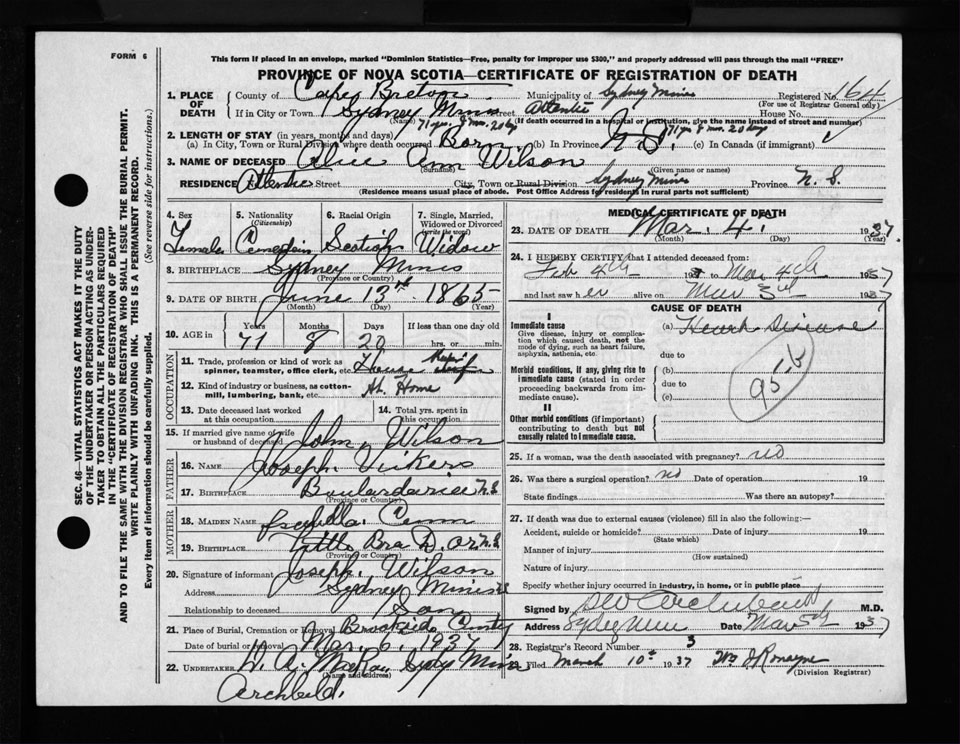 FORM 6
This form if placed in an envelope, marked "Dominion Statistics—Free, penalty for improper use $300," and properly addressed will pass through the mail "FREE"
PROVINCE OF NOVA SCOTIA—CERTIFICATE OF REGISTRATION OF DEATH
1. PLACE OF DEATH
County of Cape Breton Municipality of Sydney Mines Registered No. 164
(For use of Registrar General only)
If in City or Town Sydney Mines Street House No.
(Name) (If death occurred in a hospital or institution, give the name instead of street and number)
71 yrs. 8 mo. 20 days 71 yrs. 8 mo. 20 days
2. LENGTH OF STAY (in years, months and days)
(a) In City, Town or Rural Division where death occurred Born (b) In Province N.S. (c) In Canada (if immigrant)
3. NAME OF DECEASED Alice Ann Wilson
(Surname) (Given name or names)
RESIDENCE Street City, Town or Rural Division Sydney Mines Province N. S.
(Residence means usual place of abode. Post Office Address for residents in rural parts not sufficient)
4. Sex
Female
5. Nationality
(Citizenship)
Canadian
6. Racial Origin
Scotish
7. Single, Married, Widowed or Divorced
(write the word)
Widow
8. BIRTHPLACE Sydney Mines
(Province or Country)
9. DATE OF BIRTH June 13th 1865
(Month) (Day) (Year)
10. AGE in
Years Months Days If less than one day old
71 8 20 hrs. or min.
OCCUPATION
11. Trade, profession or kind of work as spinner, teamster, office clerk, etc. House
12. Kind of industry or business, as cotton-mill, lumbering, bank, etc. At Home
13. Date deceased last worked at this occupation
14. Total yrs. spent in this occupation
15. If married give name of wife or husband of deceased John Wilson
FATHER
16. Name Joseph Vickers
17. Birthplace Boulardarie N.S
(Province or Country)
MOTHER
18. Maiden Name
19. Birthplace Little Bra D'or N.S
(Province or Country)
20. Signature of informant Joseph Wilson
Address Sydney Mines
Relationship to deceased Son
21. Place of Burial, Cremation or Removal
Date of burial or removal Mar. 6, 1937
22. UNDERTAKER
(Name and address)
MEDICAL CERTIFICATE OF DEATH
23. DATE OF DEATH Mar. 4. 1937.
(Month) (Day) (Year)
24. I HEREBY CERTIFY that I attended deceased from:
Feb 4th 193 to Mar 4th 1937
and last saw her alive on Mar 3rd 1937
CAUSE OF DEATH
I
Immediate cause
Give disease, injury or complication which caused death, not the mode of dying, such as heart failure, asphyxia, asthenia, etc.
(a) Heart Disease
due to
Morbid conditions, if any, giving rise to immediate cause (stated in order proceeding backwards from immediate cause).
(b)
due to
(c)
95-b
II
Other morbid conditions (if important) contributing to death but not causally related to immediate cause.
25. If a woman, was the death associated with pregnancy? no
26. Was there a surgical operation? no Date of operation 19
State findings Was there an autopsy?
27. If death was due to external causes (violence) fill in also the following:—
Accident, suicide or homicide? Date of injury 19
(State which)
Manner of injury
(How sustained)
Nature of injury
Specify whether injury occurred in industry, in home, or in public place
Signed by M.D.
Address Date Mar 5th 1937
28. Registrar's Record Number 3
29. Filed March 10th 1937 Wm J Romayne
(Division Registrar)
SEC. 46—VITAL STATISTICS ACT MAKES IT THE DUTY
OF THE UNDERTAKER OR PERSON ACTING AS UNDER-
TAKER TO OBTAIN ALL THE PARTICULARS REQUIRED
IN THE "CERTIFICATE OF REGISTRATION OF DEATH"
AND TO FILE THE SAME WITH THE DIVISION REGISTRAR WHO SHALL ISSUE THE BURIAL PERMIT.
WRITE PLAINLY WITH UNFADING INK. THIS IS A PERMANENT RECORD.
Every item of information should be carefully supplied. (See reverse side for instructions.)